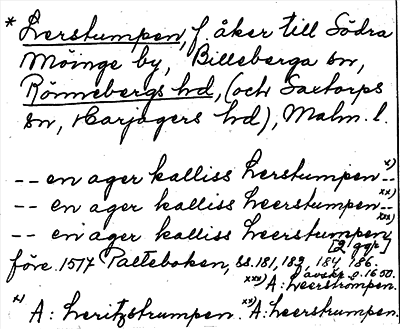 * Lerstumpen, f. åker till Södra
Möinge by, Billeberga sn,
Rönnebergs hd, (och Saxtorps
sn, Harjagers hd), Malm. l.
-- en ager kalliss Lerstumpen x) --
-- en ager kalliss Leerstumpen xx) --
-- en ager kalliss Leerstumpen xxx)
[2 ggr]
före 1517 Palteboken, ss. 181, 182, 184, 186.
i avskr. o. 1650.
xxx) A: Leerstrompen.
x) A: Leritzstrumpen. xx) A: Leerstrumpen.